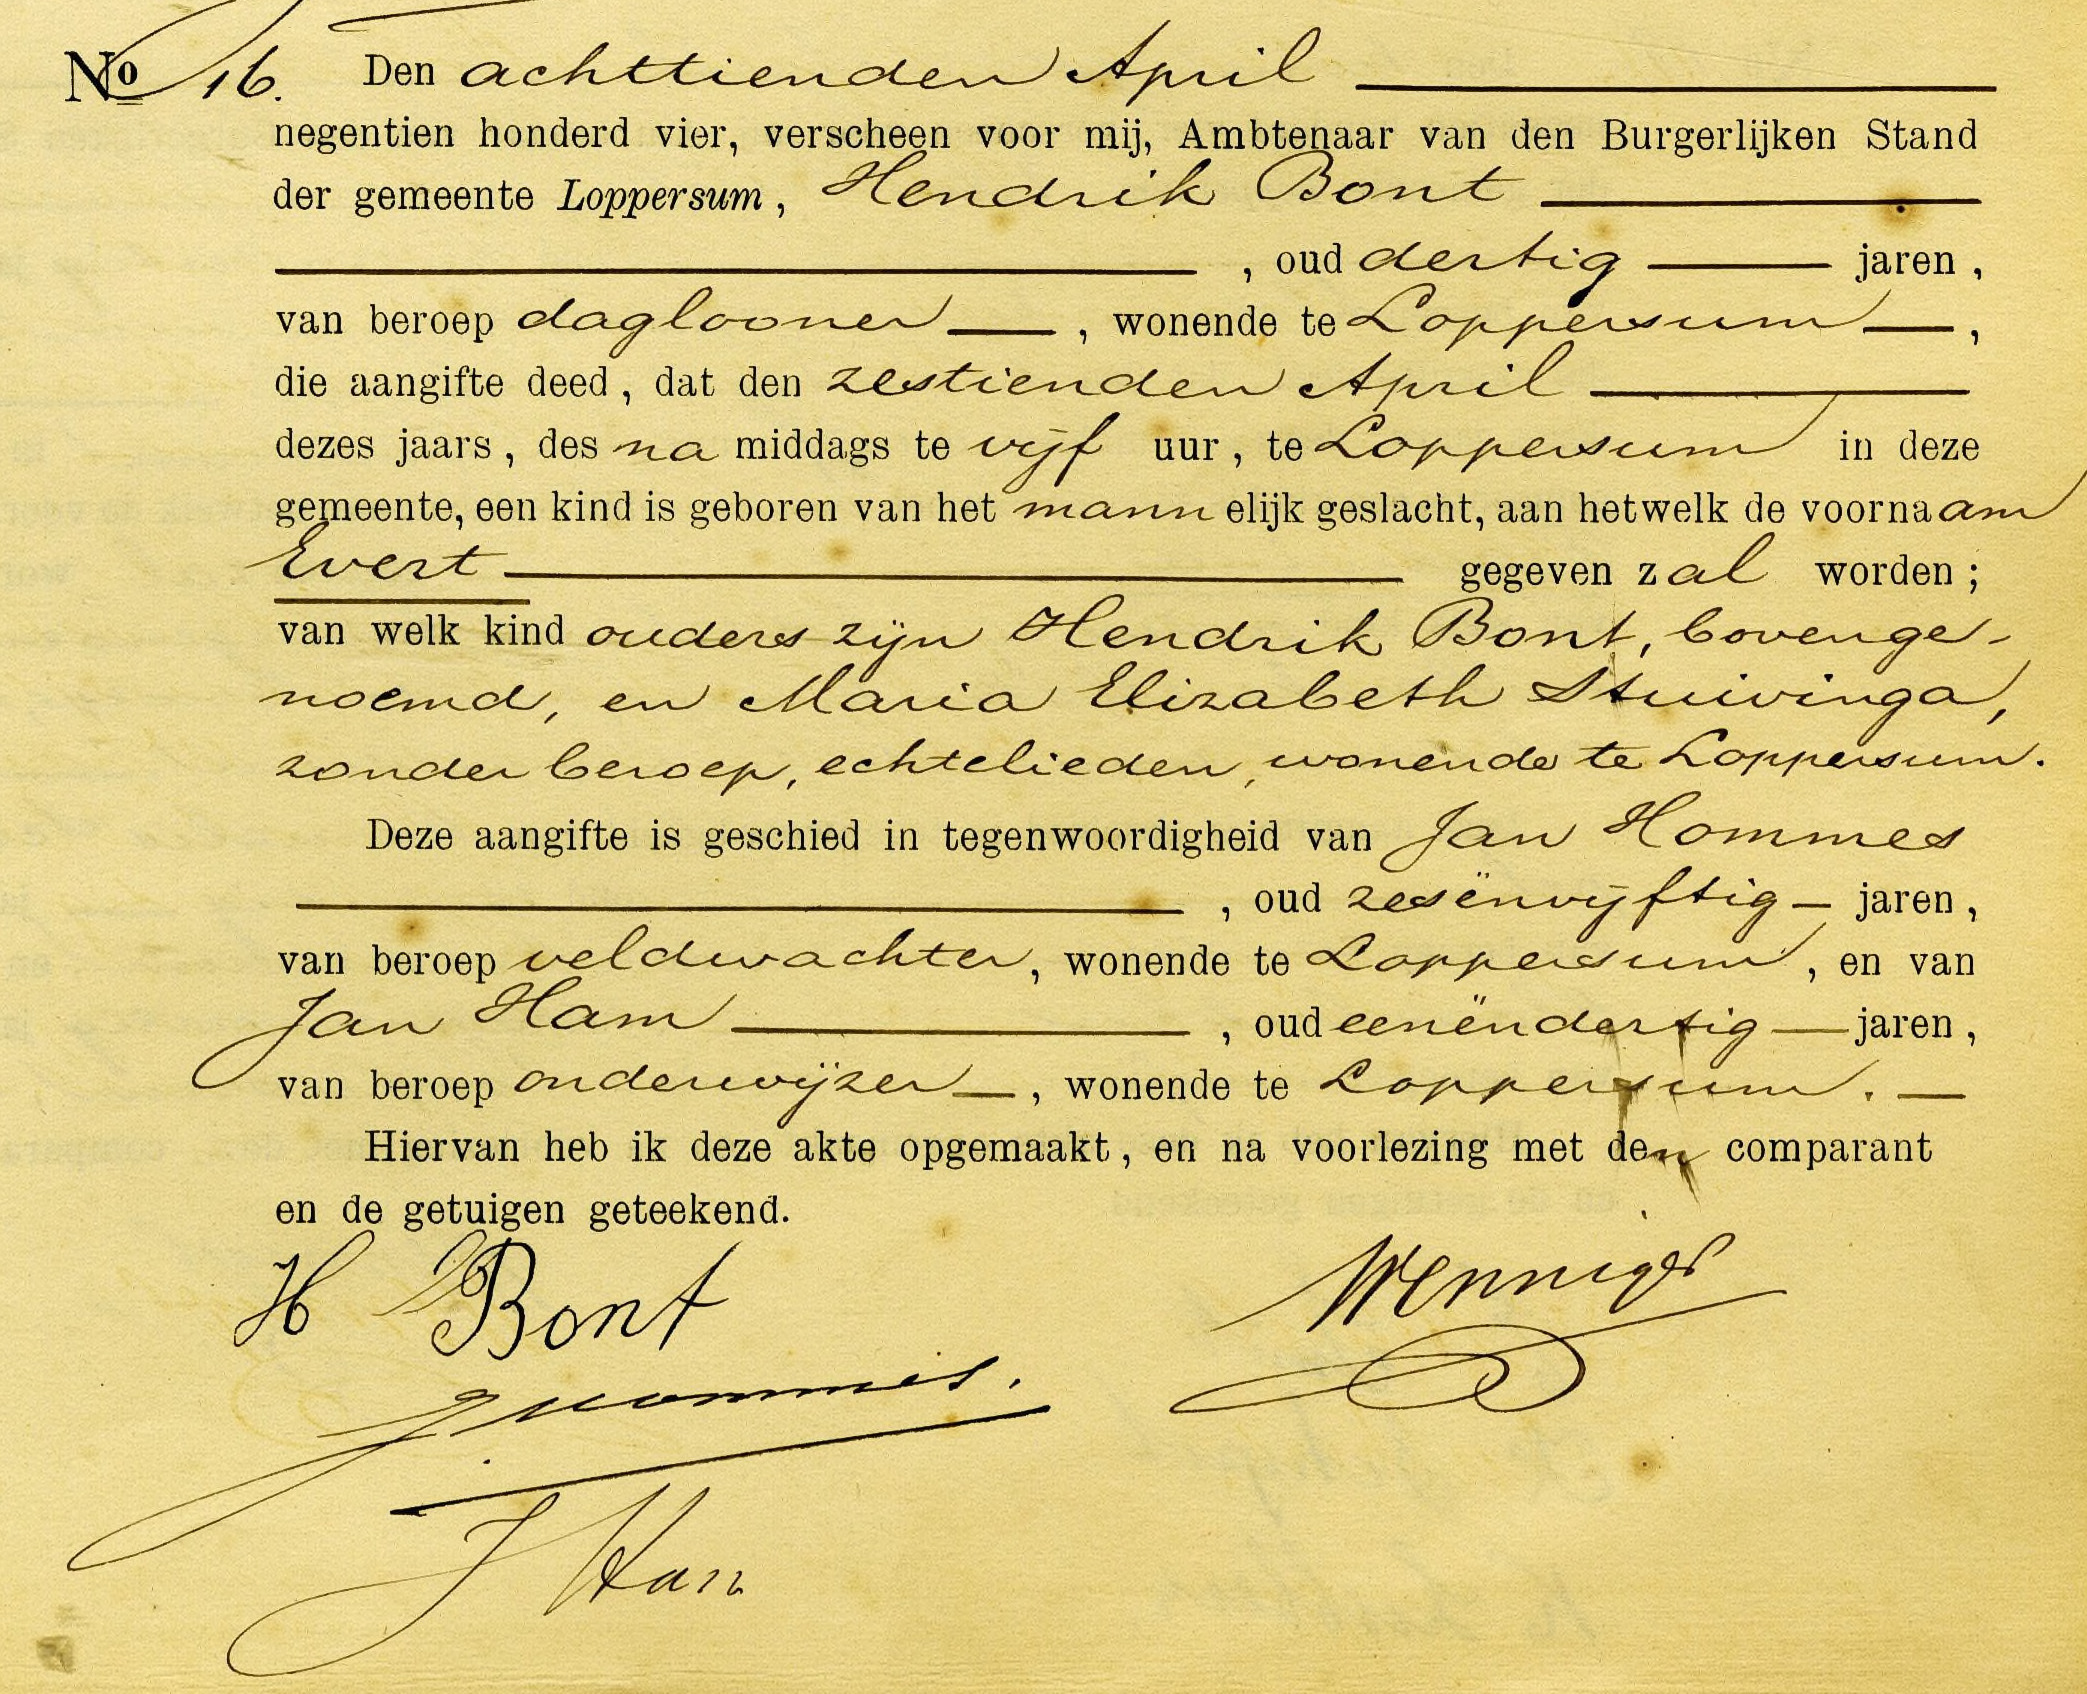 No 16. Den achttienden April
negentien honderd vier, verscheen voor mij, Ambtenaar van den Burgerlijken Stand
der gemeente Loppersum, Hendrik Bont
, oud dertig jaren,
van beroep daglooner, wonende te Loppersum,
die aangifte deed, dat den zestienden April
dezes jaars, des na middags te vijf uur, te Loppersum in deze
gemeente, een kind is geboren van het mannelijk geslacht, aan hetwelk de voornaam
Evert gegeven zal worden;
van welk kind ouders zijn Hendrik Bont, bovenge-
noemd, en Maria Elizabeth Stuivinga,
zonder beroep, echtelieden, wonende te Loppersum.
Deze aangifte is geschied in tegenwoordigheid van Jan Hommes
, oud zesënvijftig jaren,
van beroep veldwachter, wonende te Loppersum, en van
Jan Ham, oud eenëndertig jaren,
van beroep onderwijzer, wonende te Loppersum.
Hiervan heb ik deze akte opgemaakt, en na voorlezing met den comparant
en de getuigen geteekend.
H Bont
Wenniger
J Hommes.
J Ham